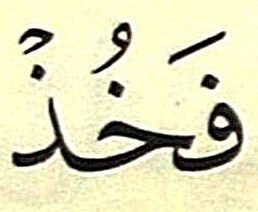 فَخُذۡ